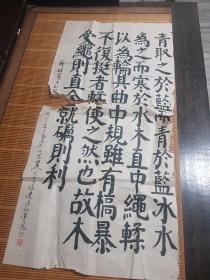 青取之於藍而青於藍冰水
為之而寒於水木直中繩輮
以為輪其曲中規雖有槁暴
不復挺者輮使之然也故木
受繩則直金就礪則利